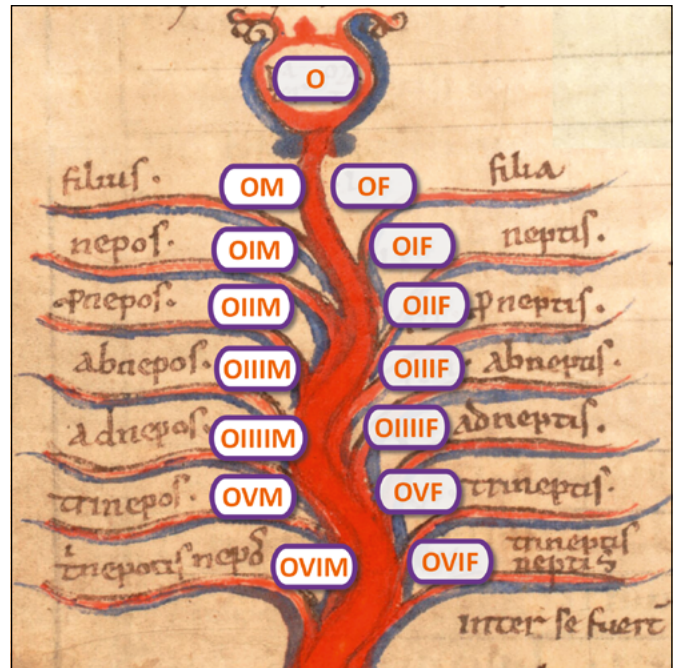 O
filius. OM OF filia
nepos. OIM OIF neptis.
ꝓnepos. OIIM OIIF ꝓneptis.
abnepos. OIIIM OIIIF abneptis.
adnepos. OIIIIM OIIIIF adneptis.
trinepos. OVM OVF trineptis.
OVIM OVIF trineptis
neptis
inter se fuert̄